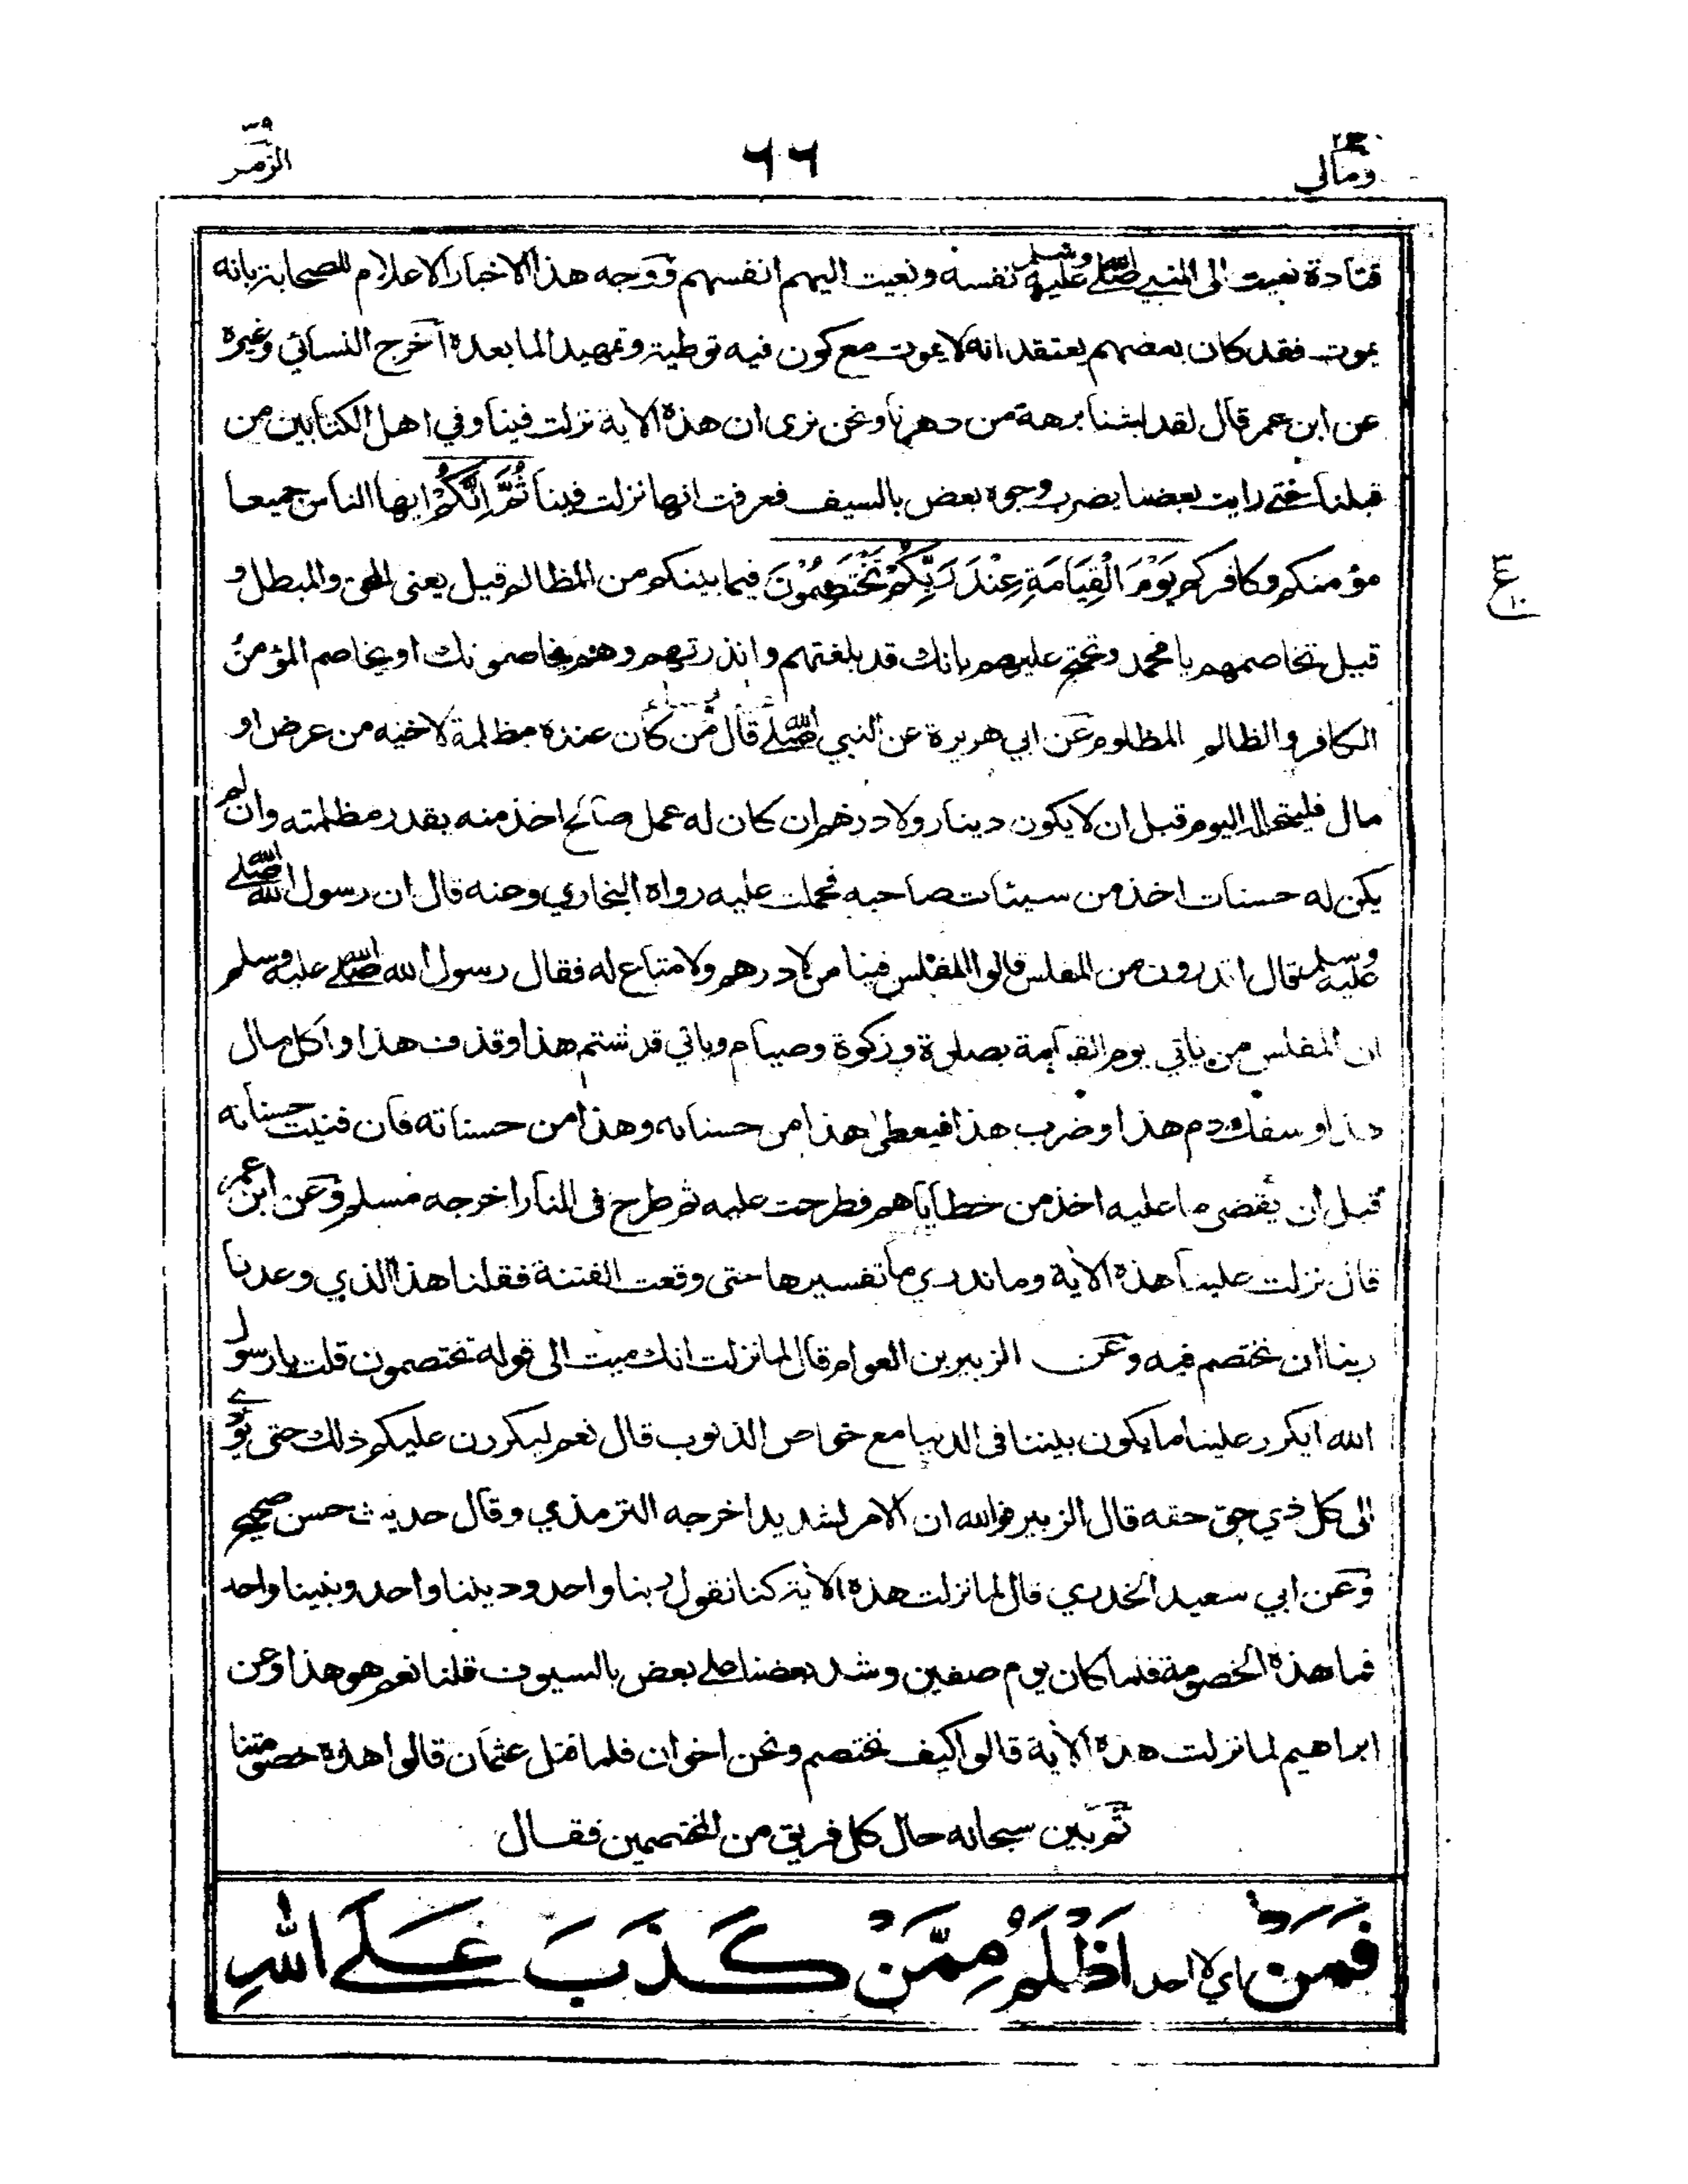 ومالي ٢٣
٦٦
الزمر ٣٩
قتادة نعيت الى النبي صلى الله عليه وسلم نفسه ونعيت اليهم انفسهم ووجه هذا الاخبار الاعلام للصحابة بانه
يموت فقد كان بعضهم يعتقد انه لا يموت مع كون فيه توطية وتمهيدا لما بعده أخرج النسائي وغيره
عن ابن عمر قال لقد لبثنا برهة من دهرنا ونحن نرى ان هذه الاية نزلت فينا وفي اهل الكتابين من
قبلنا حتى رايت بعضنا يضرب وجوه بعض بالسيف فعرفت انها نزلت فينا ثُمَّ اِنَّكُمْ ايها الناس جميعا
مؤمنكم وكافركم يَوْمَ الْقِيَامَةِ عِنْدَ رَبِّكُمْ تَخْتَصِمُوْنَ فيما بينكم من المظالم قيل يعنى المحق والمبطل و
قيل تخاصمهم يا محمد وتحتج عليهم بانك قد بلغتهم وانذرتهم وهم يخاصمونك او يخاصم المؤمن
الكافر والظالم المظلوم عن ابي هريرة عن النبي صلى الله قال من كان عنده مظلمة لاخيه من عرض او
مال فليتحلله اليوم قبل ان لا يكون دينار ولا درهم ان كان له عمل صالح اخذ منه بقدر مظلمته وان لم
يكن له حسنات اخذ من سيئات صاحبه فحملت عليه رواه البخاري وعنه قال ان رسول الله صلى الله
عليه وسلم قال اتدرون من المفلس قالوا المفلس فينا من لا درهم ولا متاع له فقال رسول الله صلى الله عليه وسلم
ان المفلس من ياتي يوم القيامة بصلوة وزكوة وصيام وياتي قد شتم هذا وقذف هذا واكل مال
هذا وسفك دم هذا وضرب هذا فيعطى هذا من حسناته وهذا من حسناته فان فنيت حسناته
قبل ان يقضى ما عليه اخذ من خطاياهم فطرحت عليه ثم طرح فى النار اخرجه مسلم وعن ابن عمر
قال نزلت علينا هذه الاية وما ندري ما تفسيرها حتى وقعت الفتنة فقلنا هذا الذي وعدنا
ربنا ان نختصم فيه وعن الزبير بن العوام قال لما نزلت انك ميت الى قوله تختصمون قلت يا رسول
الله ايكرر علينا ما يكون بيننا فى الدنيا مع خواص الذنوب قال نعم ليكررن عليكم ذلك حتى يؤدى
الى كل ذي حق حقه قال الزبير فوالله ان الامر لشديد اخرجه الترمذي وقال حديث حسن صحيح
وعن ابي سعيد الخدري قال لما نزلت هذه الاية كنا نقول ربنا واحد وديننا واحد ونبينا واحد
فما هذه الخصومة فلما كان يوم صفين وشد بعضنا على بعض بالسيوف قلنا نعم هو هذا وعن
ابراهيم لما نزلت هذه الاية قالوا كيف نختصم ونحن اخوان فلما قتل عثمان قالوا هذه خصومتنا
ثم بين سبحانه حال كل فريق من المختصمين فقال
فَمَنْ اي لا احد اَظْلَمُ مِمَّنْ كَذَبَ عَلَى اللهِ
ع ١٠